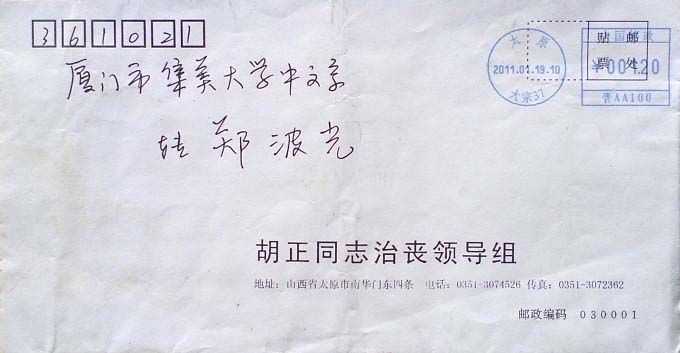 361021
厦门市集美大学中文系
转 郑波光
贴 邮
票 处
中国邮政
¥001.20
晋AA100
太原
2011.01.19.10
大宗37
胡正同志治丧领导组
地址：山西省太原市南华门东四条 电话：0351-3074526 传真：0351-3072362
邮政编码 030001